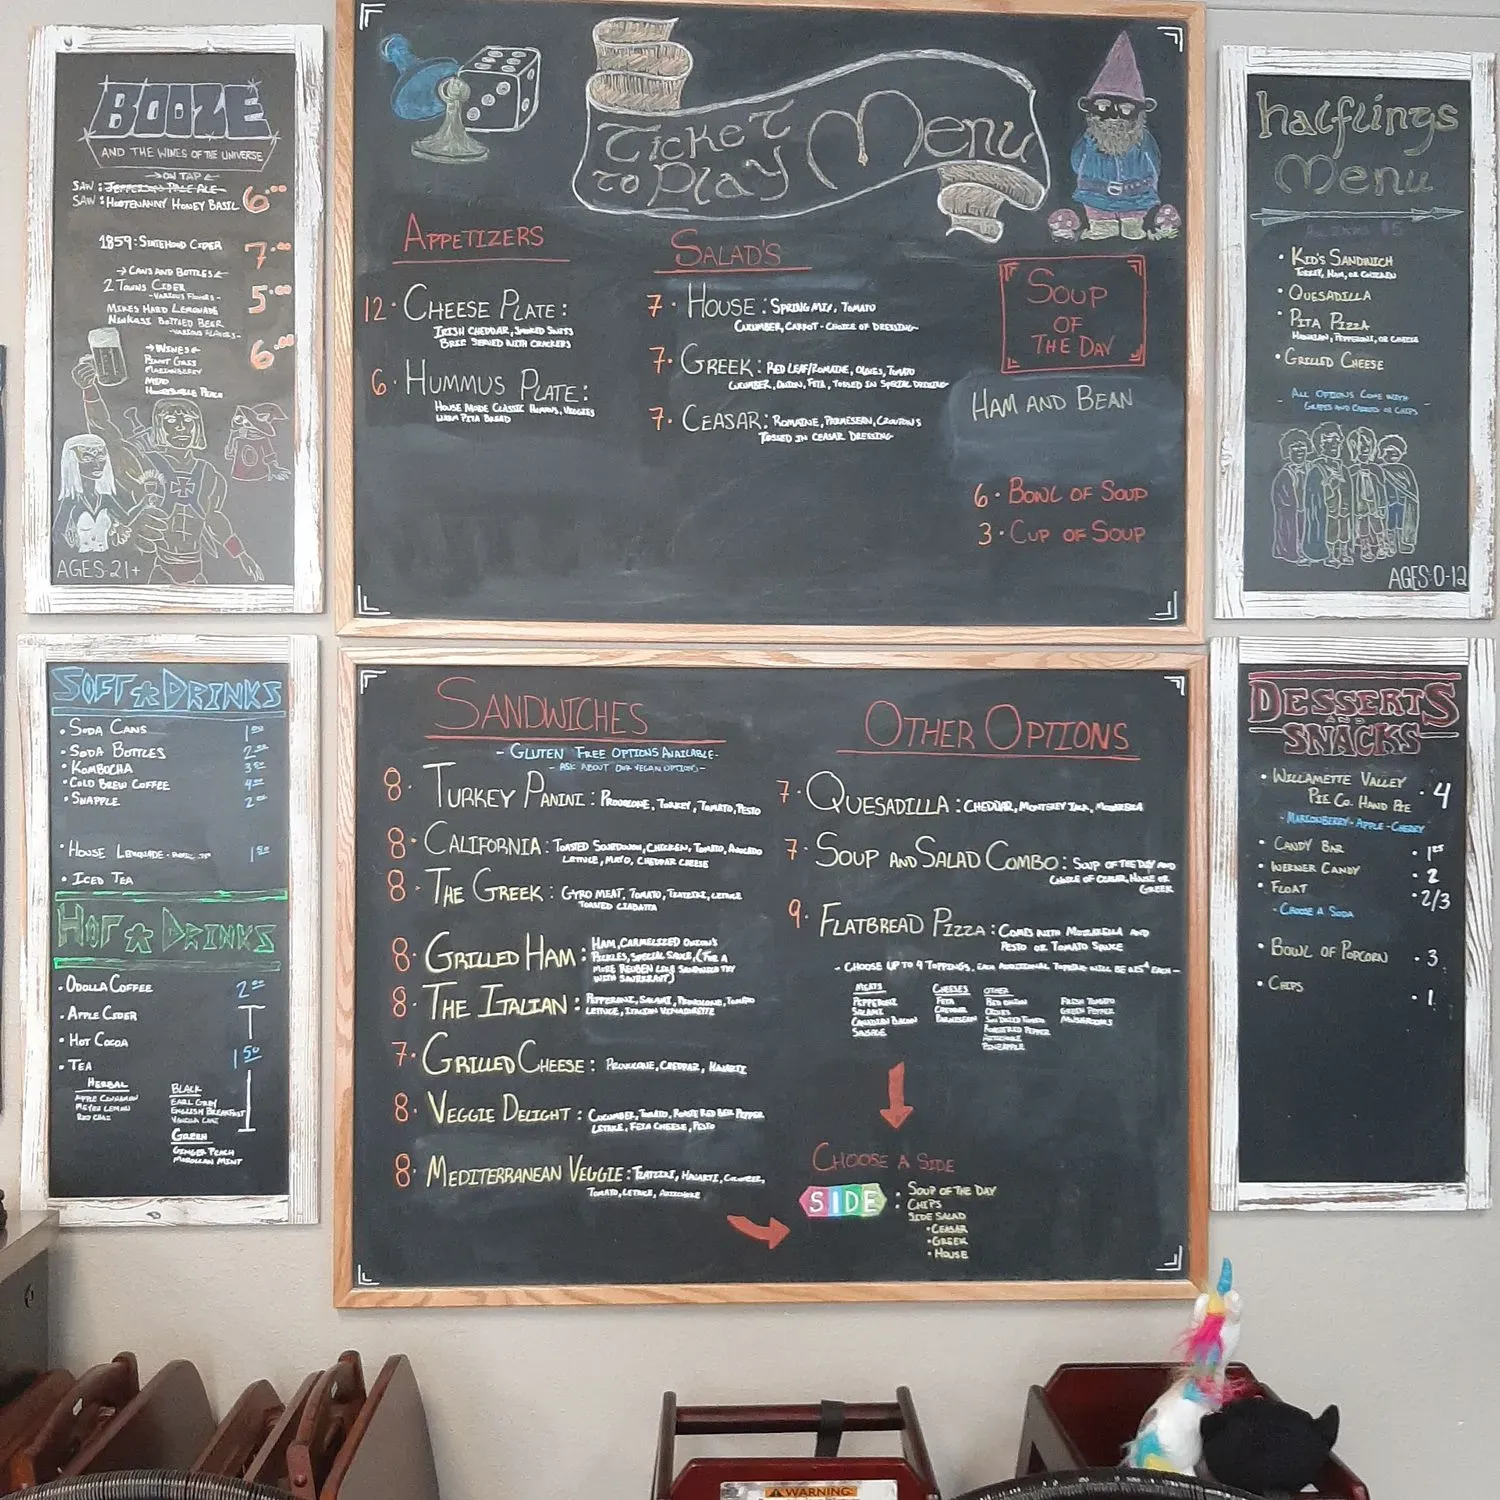 BOOZE
AND THE WINES OF THE UNIVERSE
ON TAP
SAW: JEFFERSON PALE ALE
SAW: HOOTENANNY HONEY BASIL 6.00
1859: STATEHOOD CIDER 7.00
CANS AND BOTTLES
2 TOWNS CIDER 5.00
-VARIOUS FLAVORS-
MIKES HARD LEMONADE
NINKASI BOTTLED BEER
-VARIOUS FLAVORS-
6.00
WINES
PINOT GRIS
MARIONBERRY
MEAD
PEACH
AGES 21+
TICKET TO PLAY MENU
APPETIZERS
12. CHEESE PLATE:
IRISH CHEDDAR, SMOKED SWISS
BRIE SERVED WITH CRACKERS
6. HUMMUS PLATE:
HOUSE MADE CLASSIC HUMMUS, VEGGIES
WARM PITA BREAD
SALAD'S
7. HOUSE: SPRING MIX, TOMATO
CUCUMBER, CARROT - CHOICE OF DRESSING-
7. GREEK: RED LEAF/ROMAINE, OLIVES, TOMATO
CUCUMBER, ONION, FETA, TOSSED IN SPECIAL DRESSING-
7. CEASAR: ROMAINE, PARMESEAN, CROUTONS
TOSSED IN CEASAR DRESSING-
SOUP
OF
THE DAY
HAM AND BEAN
6. BOWL OF SOUP
3. CUP OF SOUP
halflings
Menu
ALL ITEMS $5
• KID'S SANDWICH
TURKEY, HAM, OR CHICKEN
• QUESADILLA
• PITA PIZZA
HAWAIIAN, PEPPERONI, OR CHEESE
• GRILLED CHEESE
ALL OPTIONS COME WITH
GRAPES AND CARROTS OR CHIPS
AGES: 0-12
SOFT DRINKS
• SODA CANS 1.50
• SODA BOTTLES 2.00
• KOMBUCHA 3.50
• COLD BREW COFFEE 4.00
• SNAPPLE 2.00
• HOUSE LEMONADE 1.50
• ICED TEA
HOT DRINKS
• ODOLLA COFFEE 2.00
• APPLE CIDER
• HOT COCOA
1.50
• TEA
HERBAL
APPLE CINNAMON
MEYER LEMON
RED CHAI
BLACK
EARL GREY
ENGLISH BREAKFAST
VANILLA CHAI
GREEN
GINGER PEACH
MOROCCAN MINT
SANDWICHES
- GLUTEN FREE OPTIONS AVAILABLE-
- ASK ABOUT OUR VEGAN OPTIONS-
8. TURKEY PANINI: PROVOLONE, TURKEY, TOMATO, PESTO
8. CALIFORNIA: TOASTED SOURDOUGH, CHICKEN, TOMATO, AVOCADO
LETTUCE, MAYO, CHEDDAR CHEESE
8. THE GREEK: GYRO MEAT, TOMATO, TZATZIKI, LETTUCE
TOASTED CIABATTA
8. GRILLED HAM: HAM, CARMELIZED ONION'S
PICKLES, SPECIAL SAUCE, (FOR A
MORE REUBEN LIKE SANDWICH TRY
WITH SAUERKRAUT)
8. THE ITALIAN: PEPPERONI, SALAMI, PROVOLONE, TOMATO
LETTUCE, ITALIAN VINAIGRETTE
7. GRILLED CHEESE: PROVOLONE, CHEDDAR, HAVARTI
8. VEGGIE DELIGHT: CUCUMBER, TOMATO, ROASTED RED BELL PEPPER
LETTUCE, FETA CHEESE, PESTO
8. MEDITERRANEAN VEGGIE: TZATZIKI, HAVARTI, CUCUMBER,
TOMATO, LETTUCE, ARTICHOKE
OTHER OPTIONS
7. QUESADILLA: CHEDDAR, MONTEREY JACK, MOZZARELLA
7. SOUP AND SALAD COMBO: SOUP OF THE DAY AND
CHOICE OF CEASAR, HOUSE OR
GREEK
9. FLATBREAD PIZZA: COMES WITH MOZZARELLA AND
PESTO OR TOMATO SAUCE
- CHOOSE UP TO 4 TOPPINGS, EACH ADDITIONAL TOPPING WILL BE 0.25¢ EACH -
MEATS
PEPPERONI
SALAMI
CANADIAN BACON
SAUSAGE
CHEESES
FETA
CHEDDAR
PARMESEAN
OTHER
RED ONION
OLIVES
SUN DRIED TOMATO
ROASTED RED PEPPER
ARTICHOKE
PINEAPPLE
FRESH TOMATO
GREEN PEPPER
MUSHROOMS
CHOOSE A SIDE
SIDE
• SOUP OF THE DAY
• CHIPS
SIDE SALAD
• CEASAR
• GREEK
• HOUSE
DESSERTS
AND
SNACKS
• WILLAMETTE VALLEY
PIE CO. HAND PIE . 4
- MARIONBERRY - APPLE - CHERRY
• CANDY BAR . 1.25
• WERNER CANDY . 2
• FLOAT . 2/3
- CHOOSE A SODA
• BOWL OF POPCORN . 3
• CHIPS . 1
WARNING: